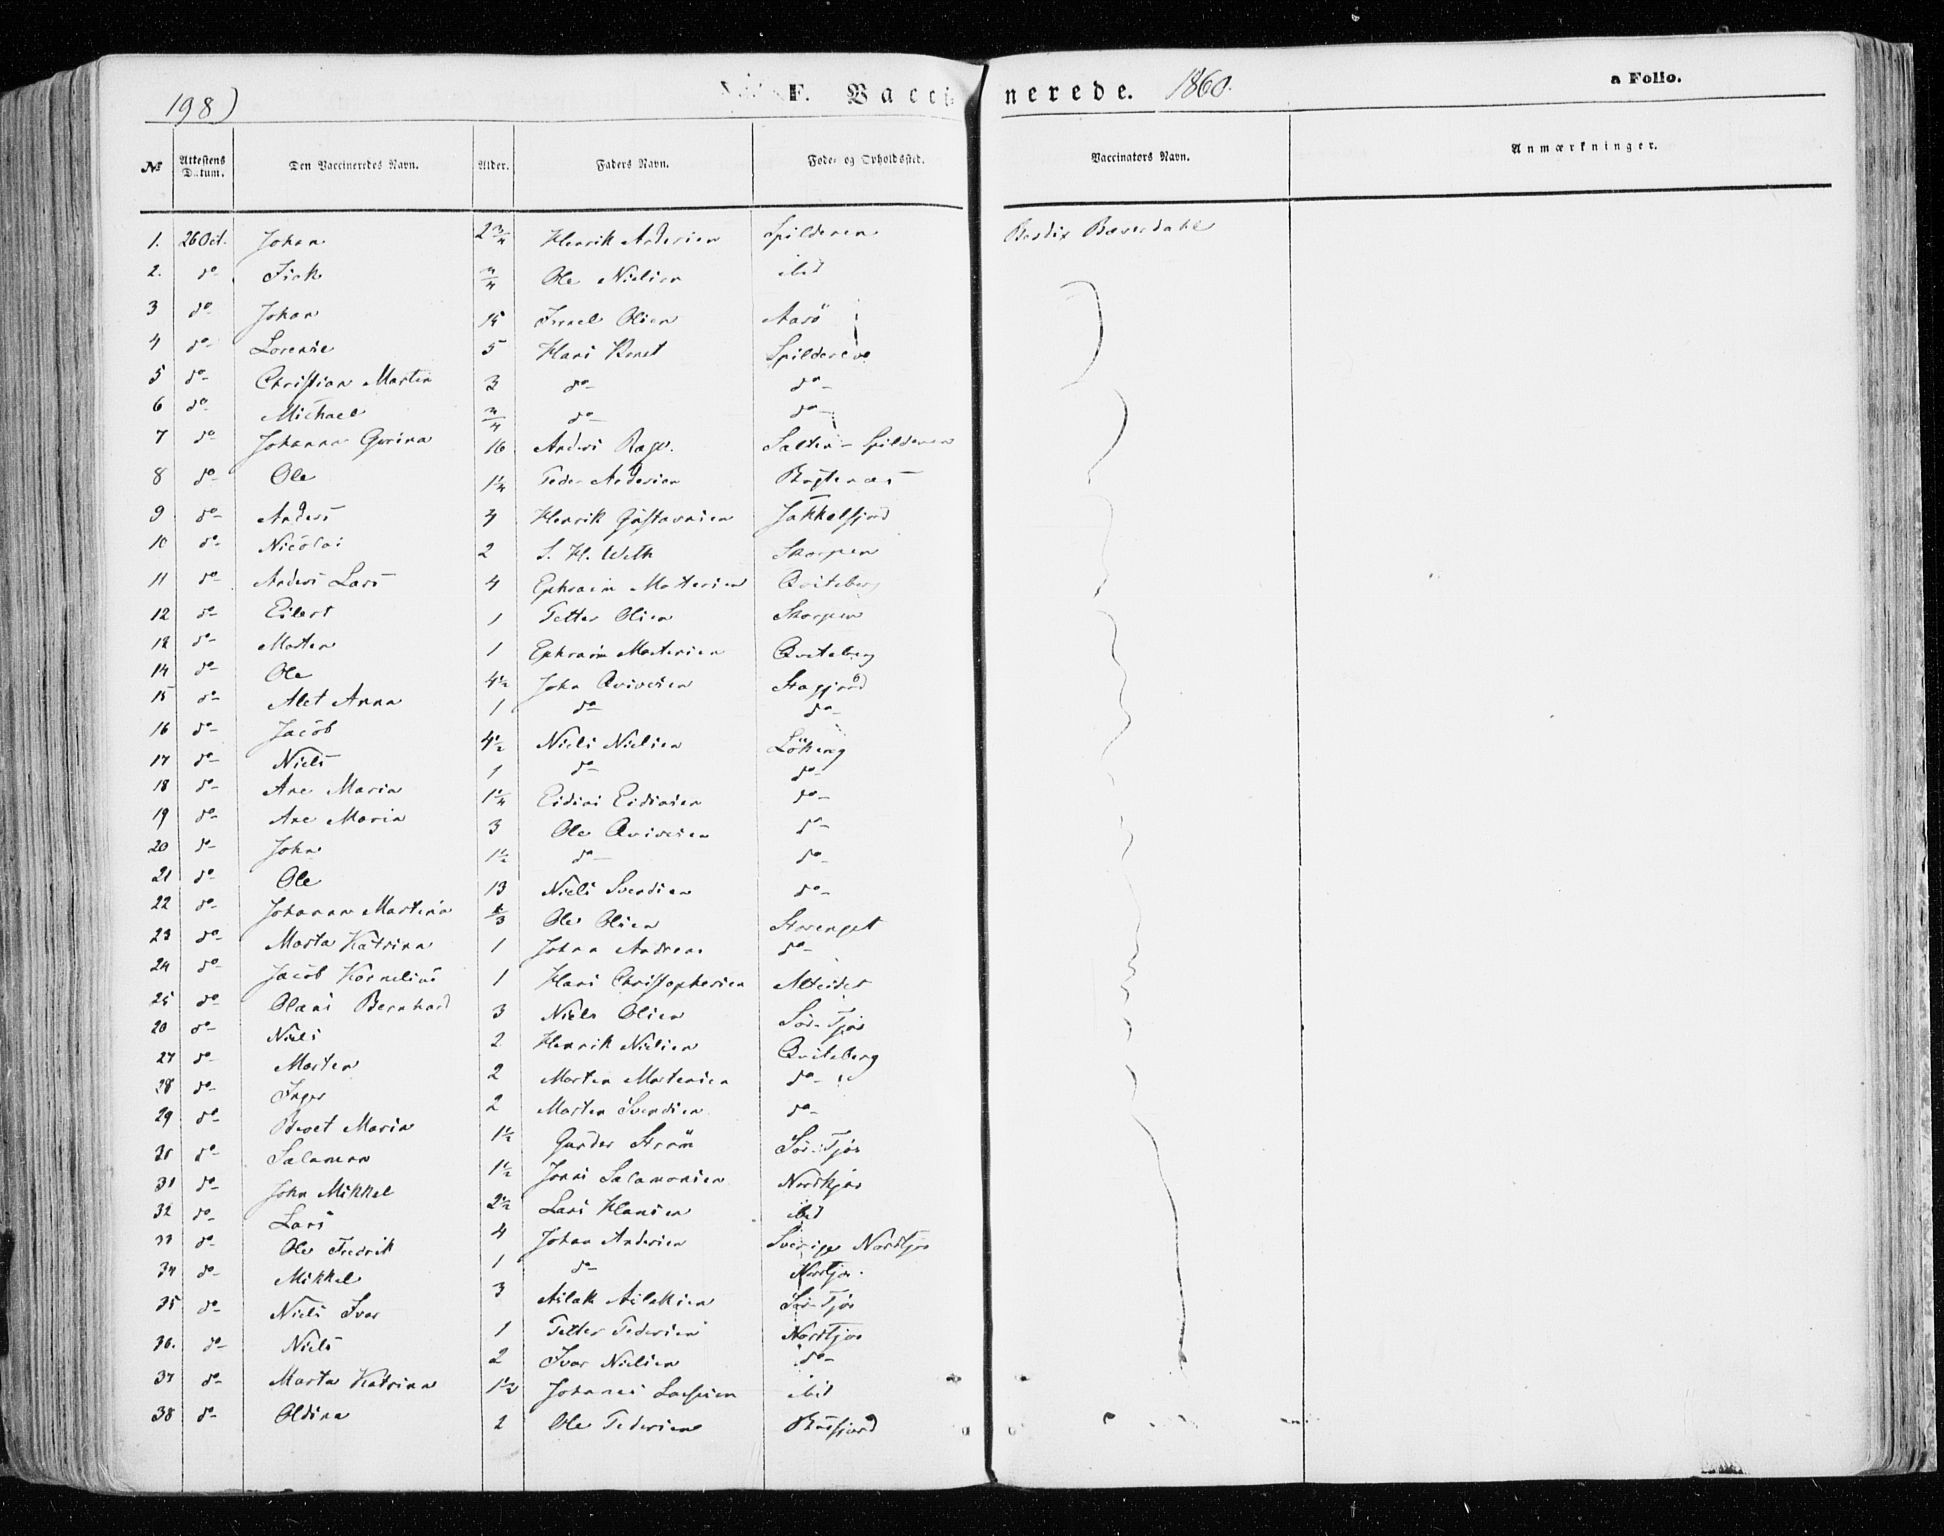 198)
F. Vaccinerede. 1860.
a Folio.
№ Attestens Datum. Den Vaccineredes Navn. Alder. Faders Navn. Føde- og Opholdssted. Vaccinators Navn. Anmærkninger.
1. 26 Oct. Johan 2¾ Henrik Andersen Spilderen
2. do Isak ¾ Ole Nielsen ibid
3 do Johan 15 Israel Olsen Aasö
4 do Lorense 5 Hans Spilderen
5 do Christian Martin 3 do do
6 do Michael ¾ do do
7 do Johanna Gurina 16 Anders Spilderen
8 do Ole 1¼ Peder Andersen
9 do Anders 3 Henrik Gustavsen Jökkelfjord
10 do Nicolai 2 S. H. Weth Skorpen
11 do Anders Lars 4 Ephraim Mortensen Qviteberg
12 do Eilert 1 Petter Olsen Skorpen
13 do Morten 1 Ephraim Mortensen Qviteberg
14 do Ole 4½ John Qvivesen
15 do Alet Anna 1 do do
16 do Jacob 4½ Niels Nielsen
17 do Niels 1 do do
18 do Ane Maria 1¼ do
19 do Ane Maria 3 Ole Qvivesen do
20 do John 1½ do do
21 do Ole 13 Niels Svendsen do
22 do Johanna Martina ⅓ Ole Olsen Storenget
23 do Marta Katrina 1 Johan Andreas do
24 do Jacob Kornelius 1 Hans Christophersen Alteidet
25 do Olaus Bernhard 3 Niels Olsen Sör-Tjos
26 do Niels 2 Henrik Nielsen Qviteberg
27 do Morten 2 Morten Mortensen do
28 do Inger 2 Morten Svendsen do
29 do Maria 1½ Ström Sör-Tjos
30 do Salamon 1½ Jonas Salamonsen Nordkjos
31 do John Mikkel 2½ Lars Hansen ibid
32 do Lars 4 Johan Andersen Sverige Nordtjos
33 do Ole Fredrik 1 do Nordtjos.
34 do Mikkel 3 Aslak Aslaksen Sör-Tjos
35 do Niels Ivar 1 Petter Pedersen Nordtjos
36. do Niels 2 Ivar Nielsen do
37 do Marta Katrina 1½ Johanes Larssen ibid
38 do Oldina 2 Ole Pedersen